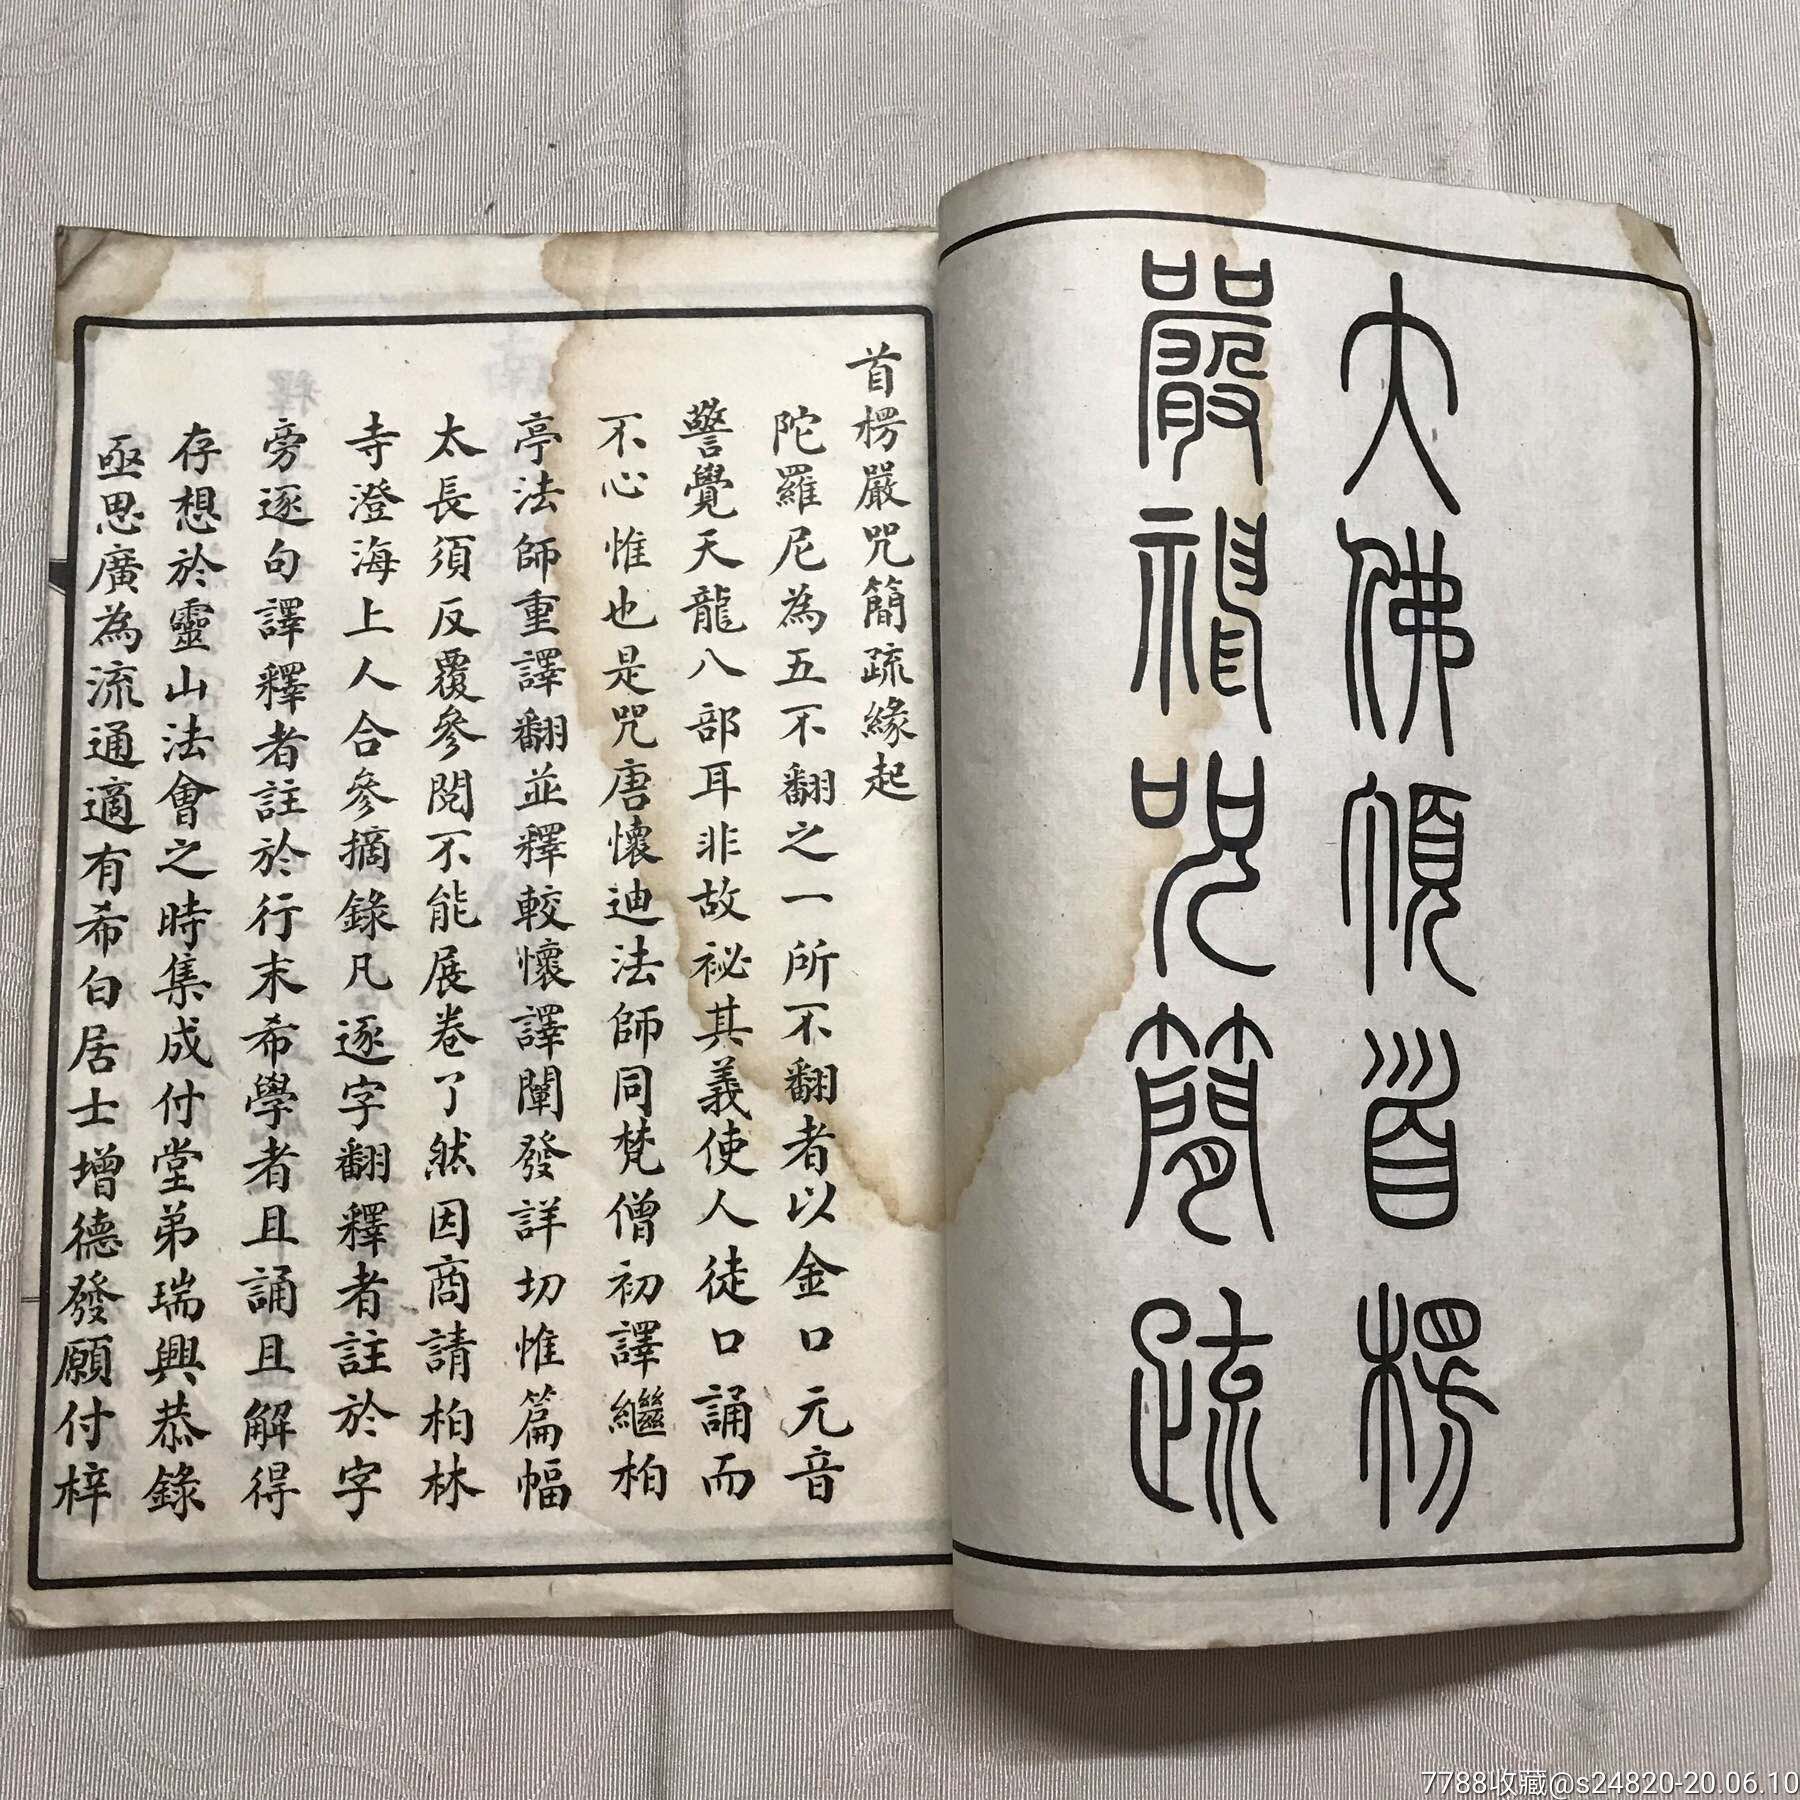 大佛頂首楞
嚴神咒簡疏
首楞嚴咒簡疏緣起
陀羅尼為五不翻之一所不翻者以金口元音
警覺天龍八部耳非故祕其義使人徒口誦而
不心惟也是咒唐懷迪法師同梵僧初譯繼柏
亭法師重譯翻並釋較懷譯闡發詳切惟篇幅
太長須反覆參閱不能展卷了然因商請柏林
寺澄海上人合參摘錄凡逐字翻釋者註於字
旁逐句譯釋者註於行末希學者且誦且解得
存想於靈山法會之時集成付堂弟瑞興恭錄
亟思廣為流通適有希白居士增德發願付梓
7788收藏@s24820-20.06.10